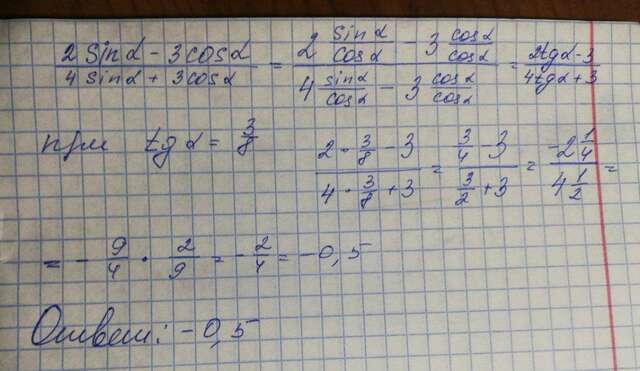 (2 sin α - 3 cos α)/(4 sin α + 3 cos α) = (2 sin α/cos α - 3 cos α/cos α)/(4 sin α/cos α - 3 cos α/cos α) = (2tg α - 3)/(4tg α + 3)
при tg α = 3/8 (2 · 3/8 - 3)/(4 · 3/8 + 3) = (3/4 - 3)/(3/2 + 3) = (-2 1/4)/(4 1/2) =
= - 9/4 · 2/9 = - 2/4 = -0,5
Ответ: -0,5